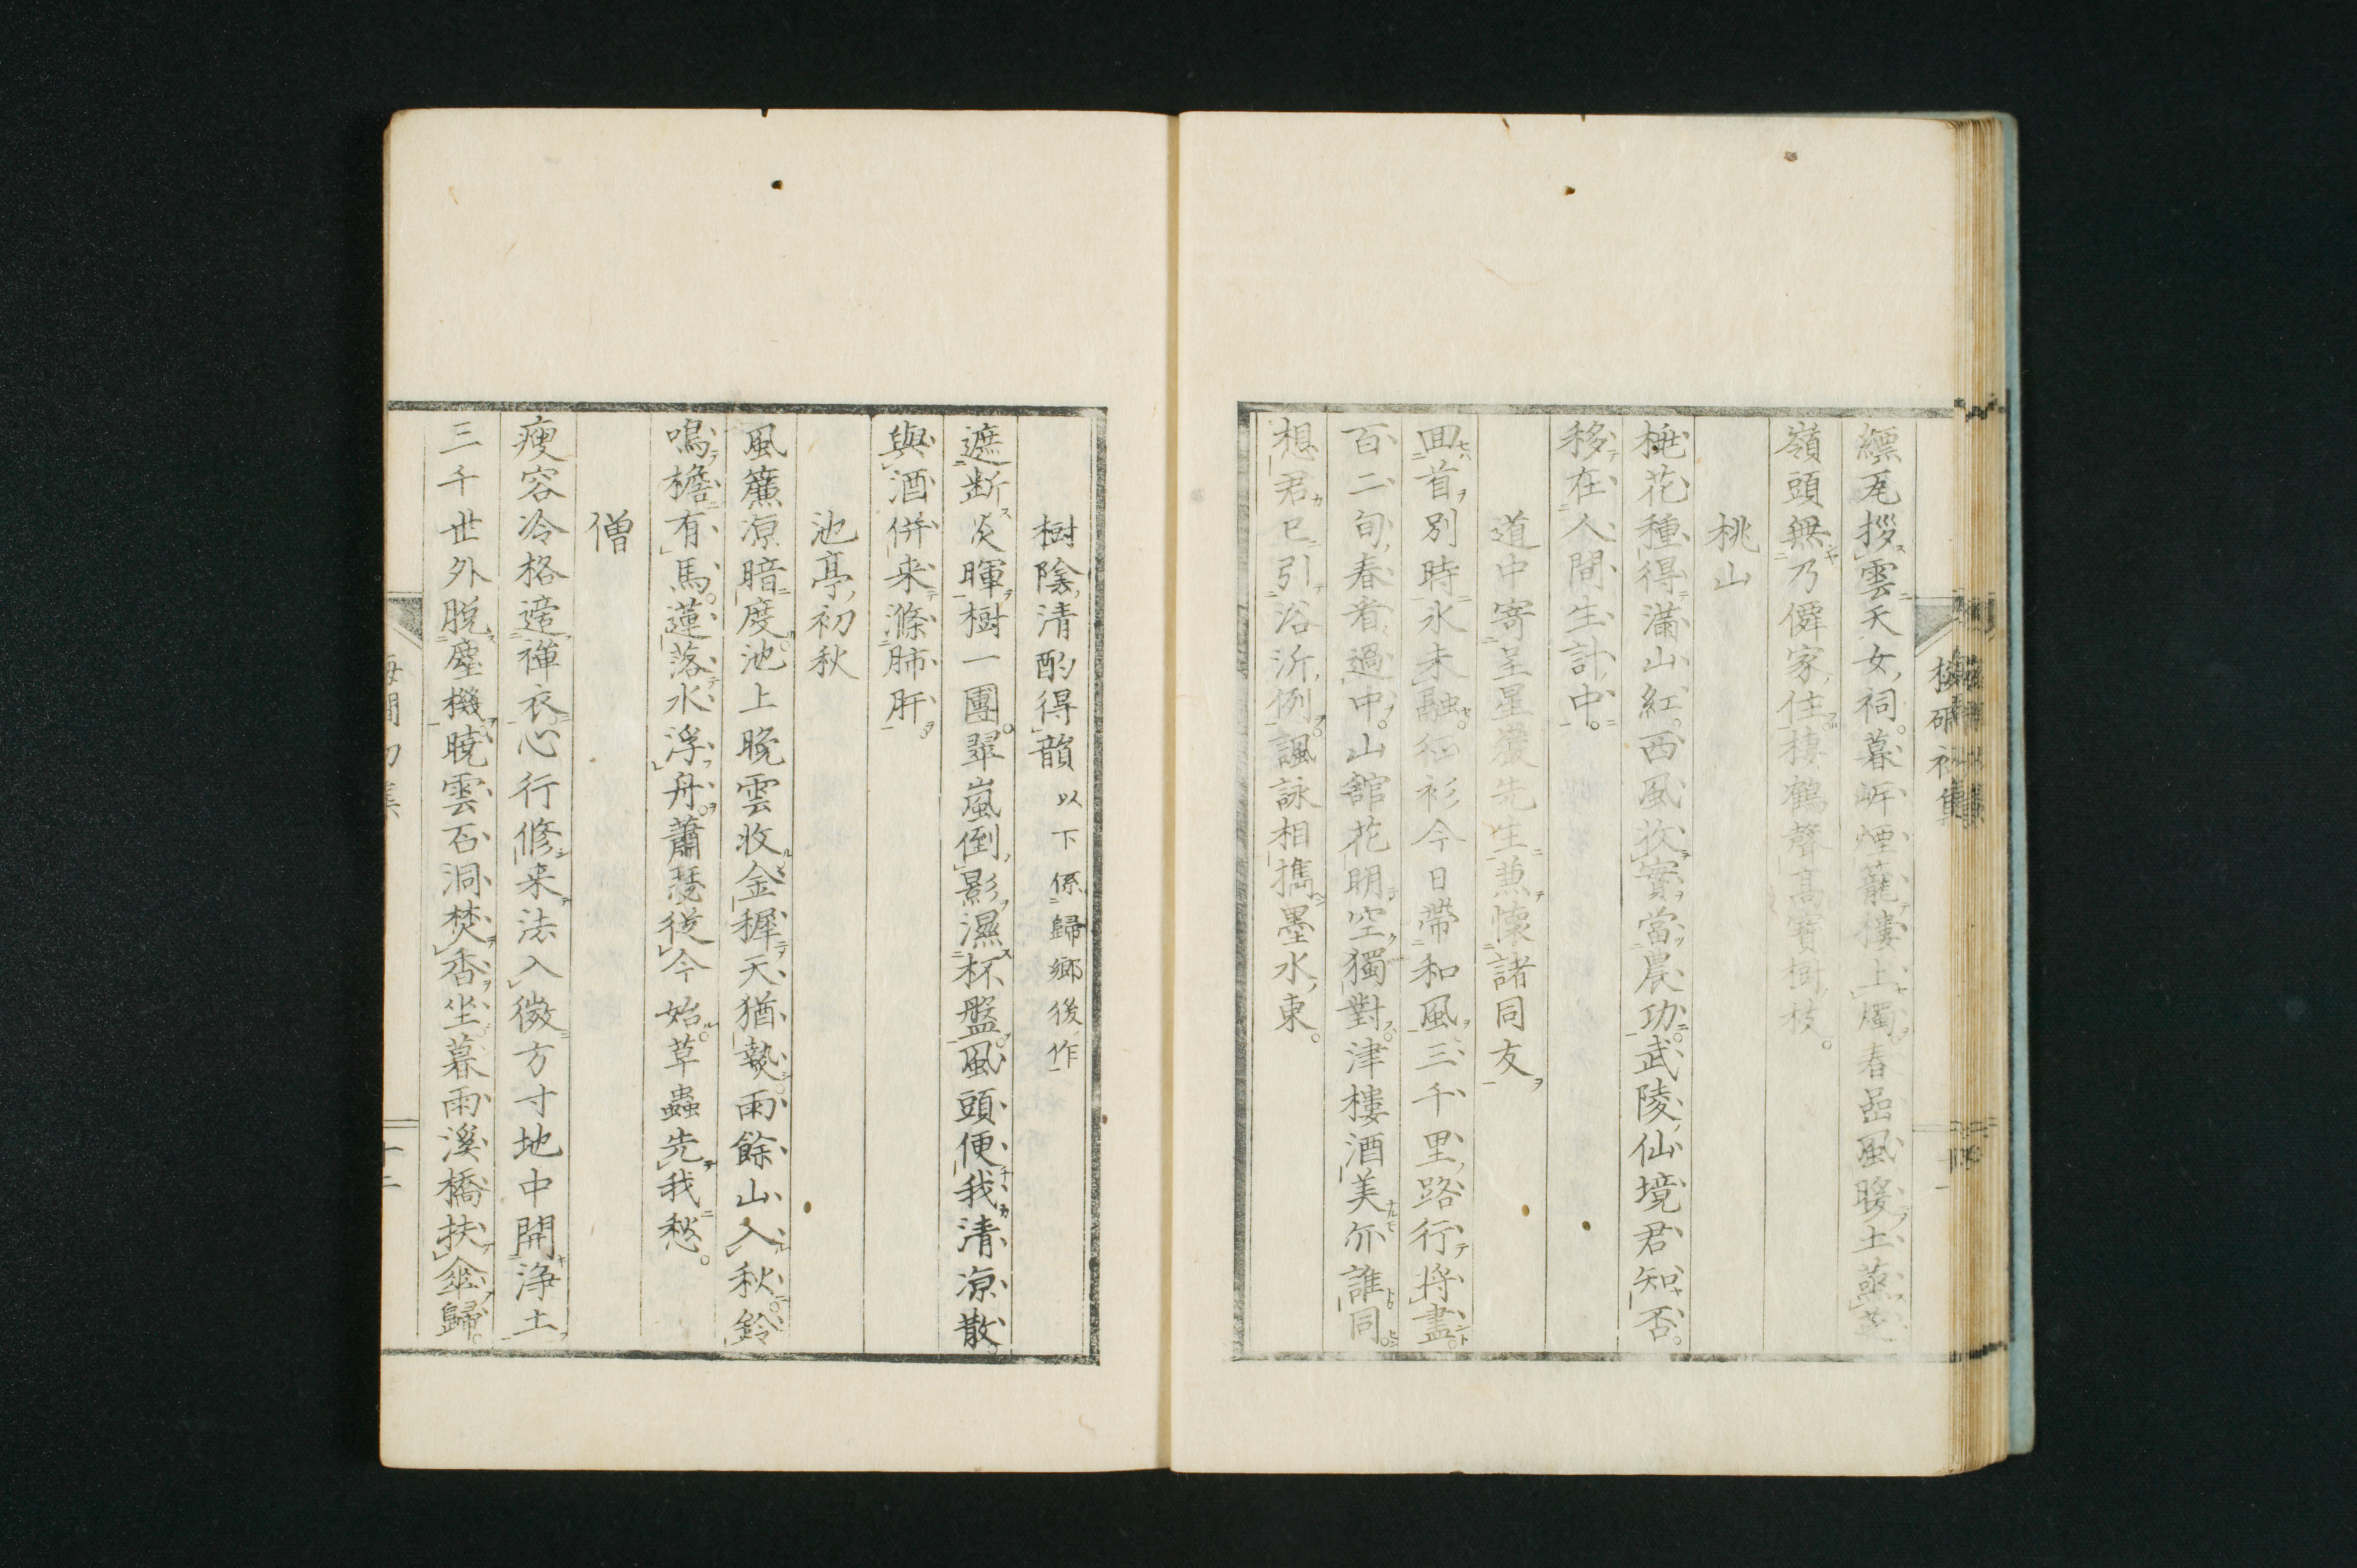 縹瓦拶雲天女祠。暮岼煙籠樓上燭。春嵒風暖土蒸芝
嶺頭無乃僊家住。棲鶴聲高寳樹枝。
桃山
桃花種得滿山紅。西風收實當農功。武陵仙境君知否。
移在人間生計中。
道中寄呈星巖先生兼懷諸同友
囬首別時氷未融。征衫今日帶和風。三千里路行将盡。
百二旬春看過中。山舘花明空獨對。津樓酒美尒誰同。
想君已引浴沂例。諷詠相擕墨水東。
樹陰清酌得韻 以下係歸郷後作
遮断炎暉樹一團。翠嵐倒影濕杯盤。風頭便我清凉散。
與酒併来滌肺肝。
池亭初秋
風簾凉暗度池上晩雲收金穉天猶熱。雨餘山入秋。鈴
鳴檐有馬。蓮落水浮舟。蕭瑟従今始。草蟲先我愁。
僧
瘦容冷格遆襌衣。心行修来法入微方寸地中開浄土
三千世外脱塵機暁雲石洞焚香坐。暮雨溪橋扶傘歸。
十二